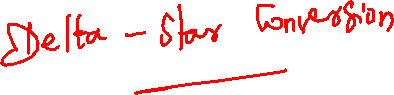 Delta - Star Conversion